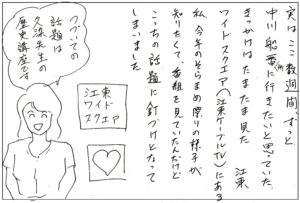 実はここ数週間、ずっと
中川船番所に行きたいと思っていた。
きっかけはたまたま見た 江東
ワイドスクエア(江東ケーブルTV)にある
私、今年のそらまめ祭りの様子が
知りたくて、番組を見ていたんだけど
こっちの話題に釘づけとなって
しまいました。
江東
ワイド
スクエア
つづいての
話題は
久染先生の
歴史講座です